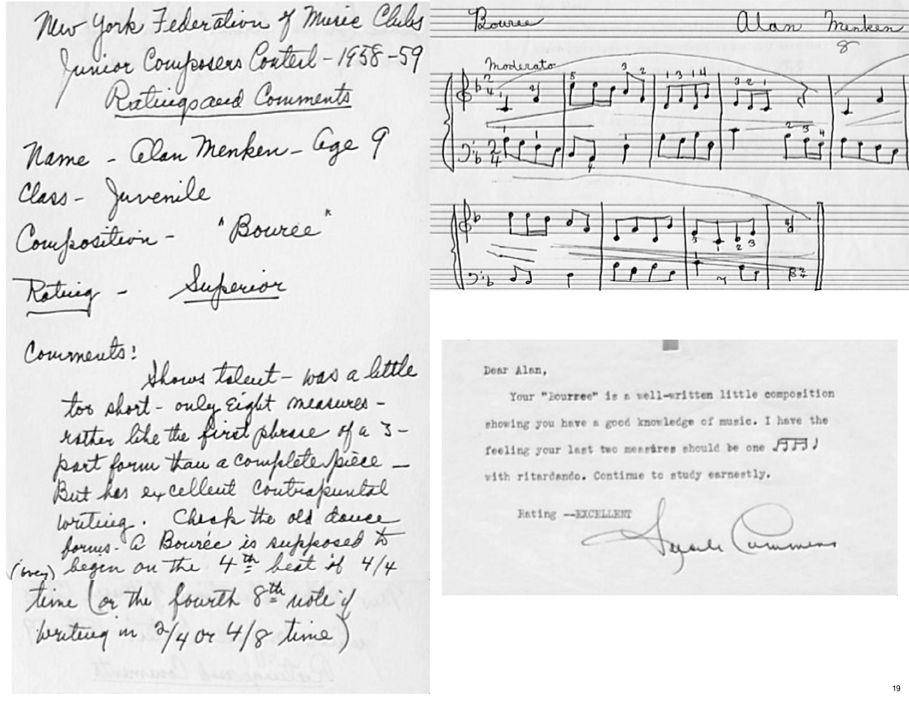 New York Federation of Music Clubs
Junior Composers Contest - 1958-59
Ratings and Comments
Name - Alan Menken - Age 9
Class - Juvenile
Composition - "Bourée"
Rating - Superior
Comments!
Shows talent - was a little
too short - only eight measures -
rather like the first phrase of a 3-
part form than a complete piece -
But has excellent contrapuntal
writing. Check the old dance
forms - A Bourée is supposed to
begin on the 4th beat of 4/4
time (or the fourth 8th note if
writing in 2/4 or 4/8 time)
Bouree
Alan Menken
8
Moderato
Dear Alan,
Your "Bourree" is a well-written little composition
showing you have a good knowledge of music. I have the
feeling your last two measures should be one
with ritardando. Continue to study earnestly.
Rating --EXCELLENT
19